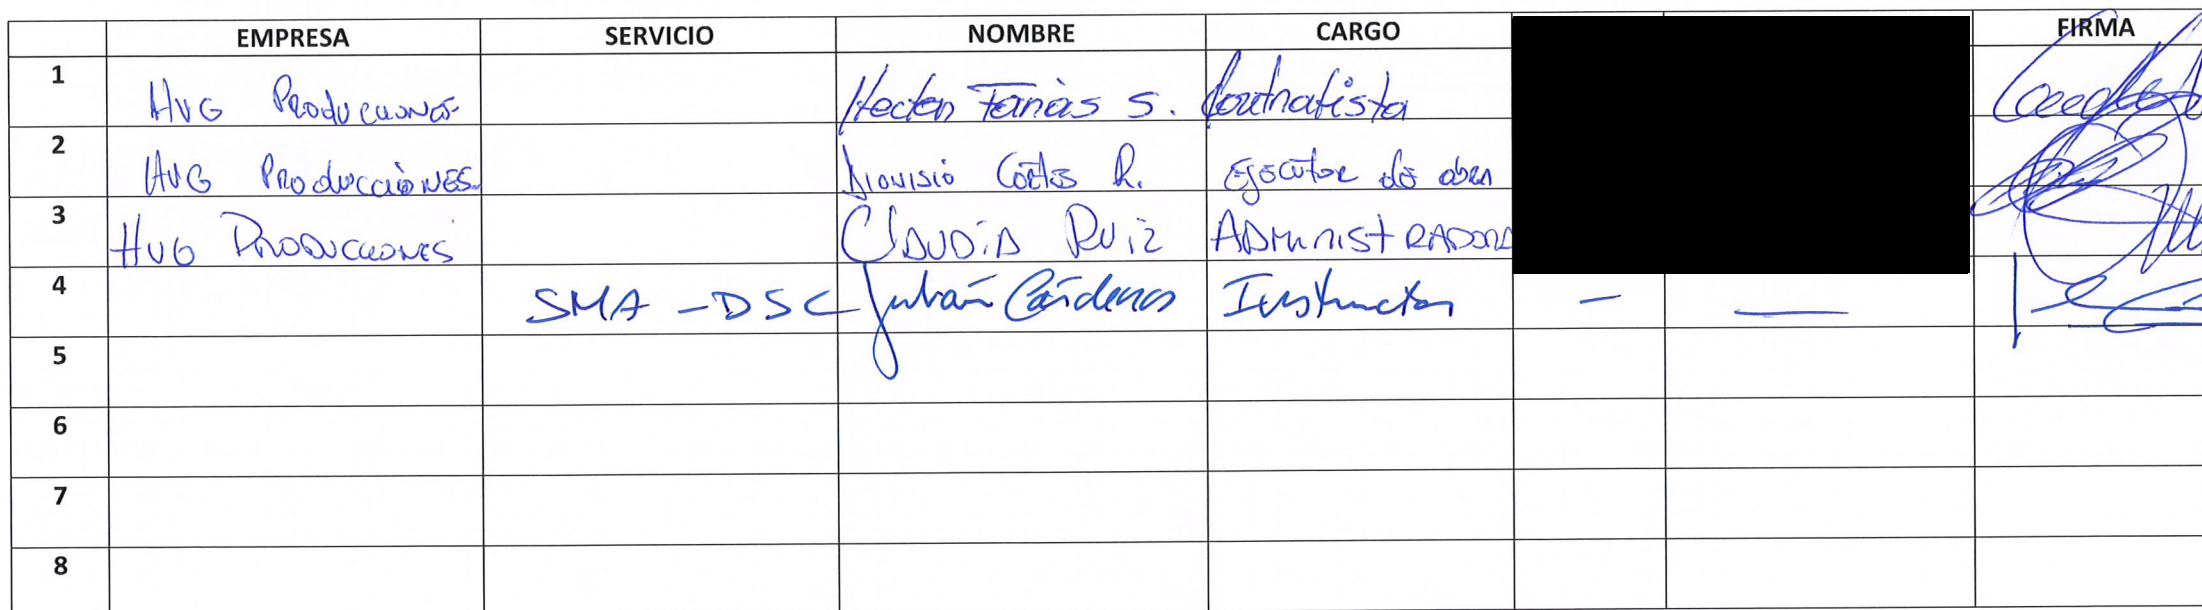 EMPRESA SERVICIO NOMBRE CARGO FIRMA
1 HVG Producciones Hector Farias S. Contratista
2 HVG Producciones. Dionisio Cortés R. Ejecutor de obra
3 HVG Producciones Claudia Ruiz Administradora
4 SMA - DSC Julián Cárdenas Instructor - —
5
6
7
8